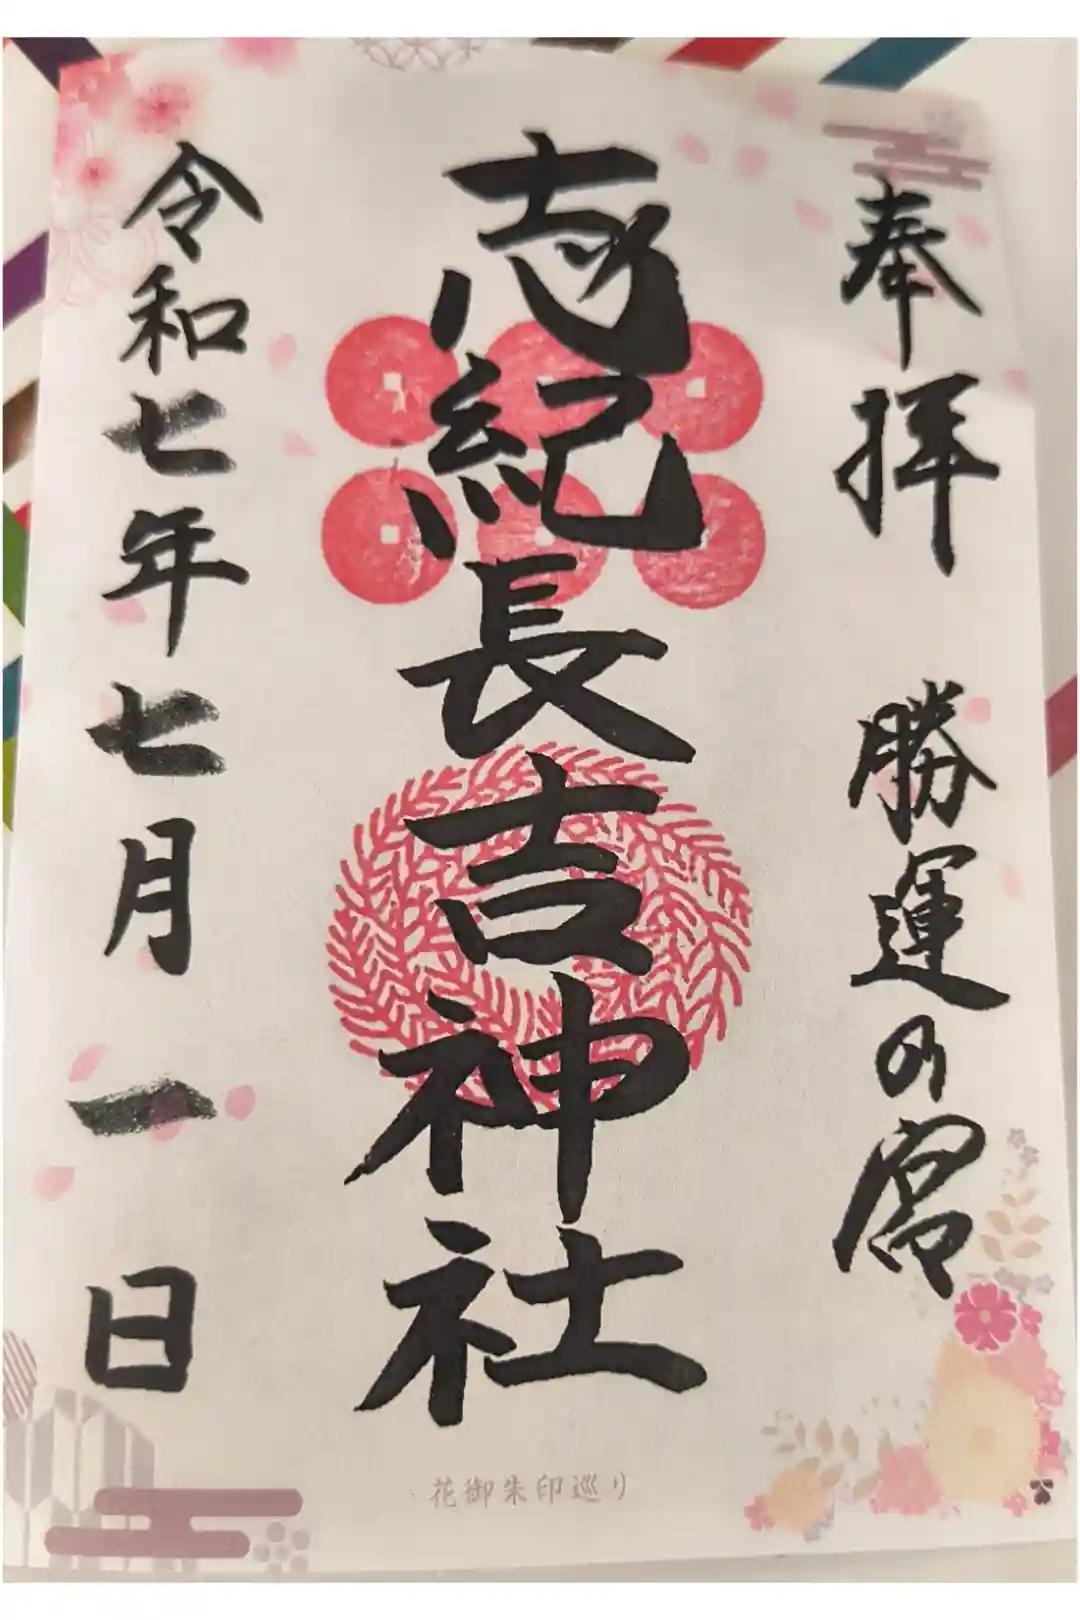 奉拝 勝運の宮
志紀長吉神社
令和七年七月一日
花御朱印巡り